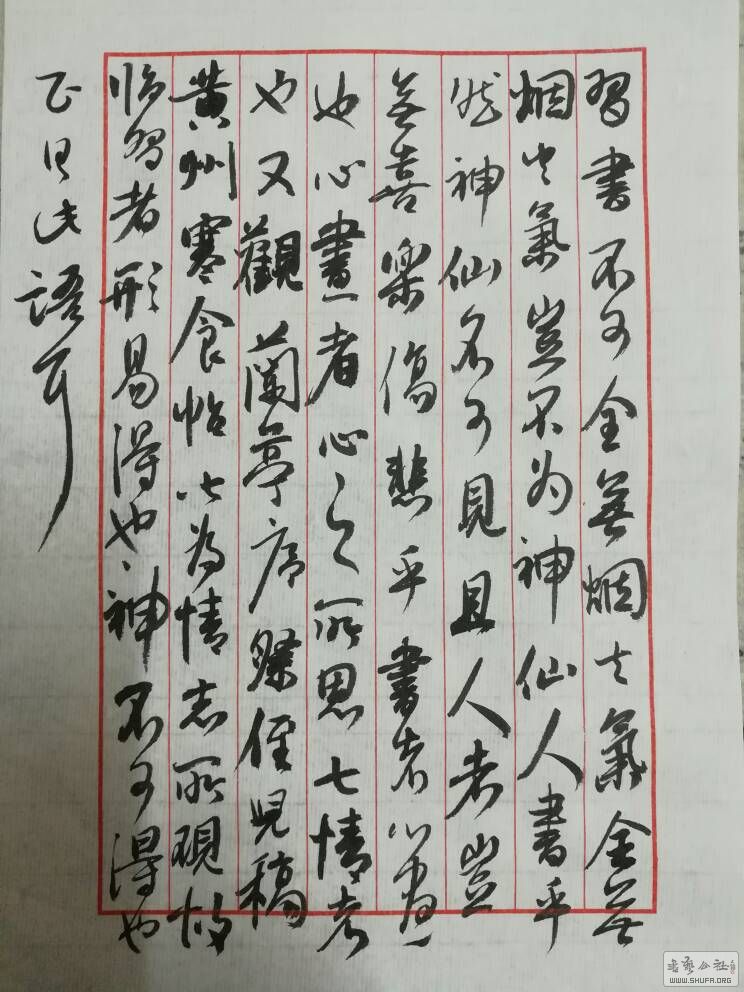 習書不可全無烟火氣全無
烟火氣豈不为神仙人書乎
然神仙不可見且人者豈
無喜樂傷悲乎書者心畫
也心畫者心之所思七情者
也又觀蘭亭序祭侄兒稿
黄州寒食帖此為情志所現故
临習者形易得也神不可得也
正月廿
語
书艺公社
WWW.SHUFA.ORG